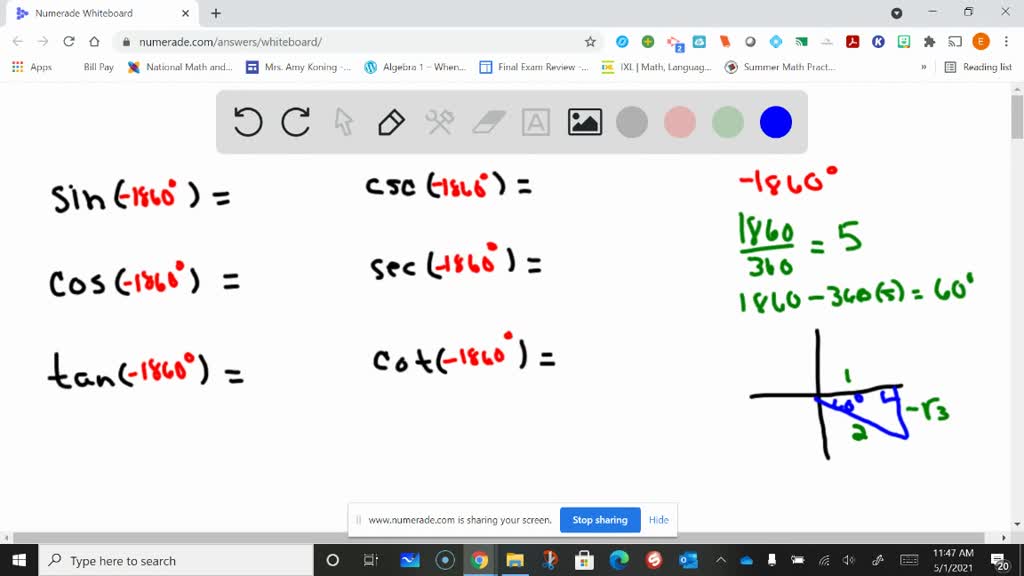 Numerade Whiteboard
numerade.com/answers/whiteboard/
Apps Bill Pay National Math and... Mrs. Amy Koning -... Algebra 1 – When... Final Exam Review -... IXL | Math, Languag... Summer Math Pract... » Reading list
sin(-1860°) =
csc(-1860°) =
-1860°
cos(-1860°) =
sec(-1860°) =
1860
360
= 5
1860 - 360(5) = 60°
tan(-1860°) =
cot(-1860°) =
1
60°
-√3
2
www.numerade.com is sharing your screen. Stop sharing Hide
Type here to search
11:47 AM
5/1/2021
20